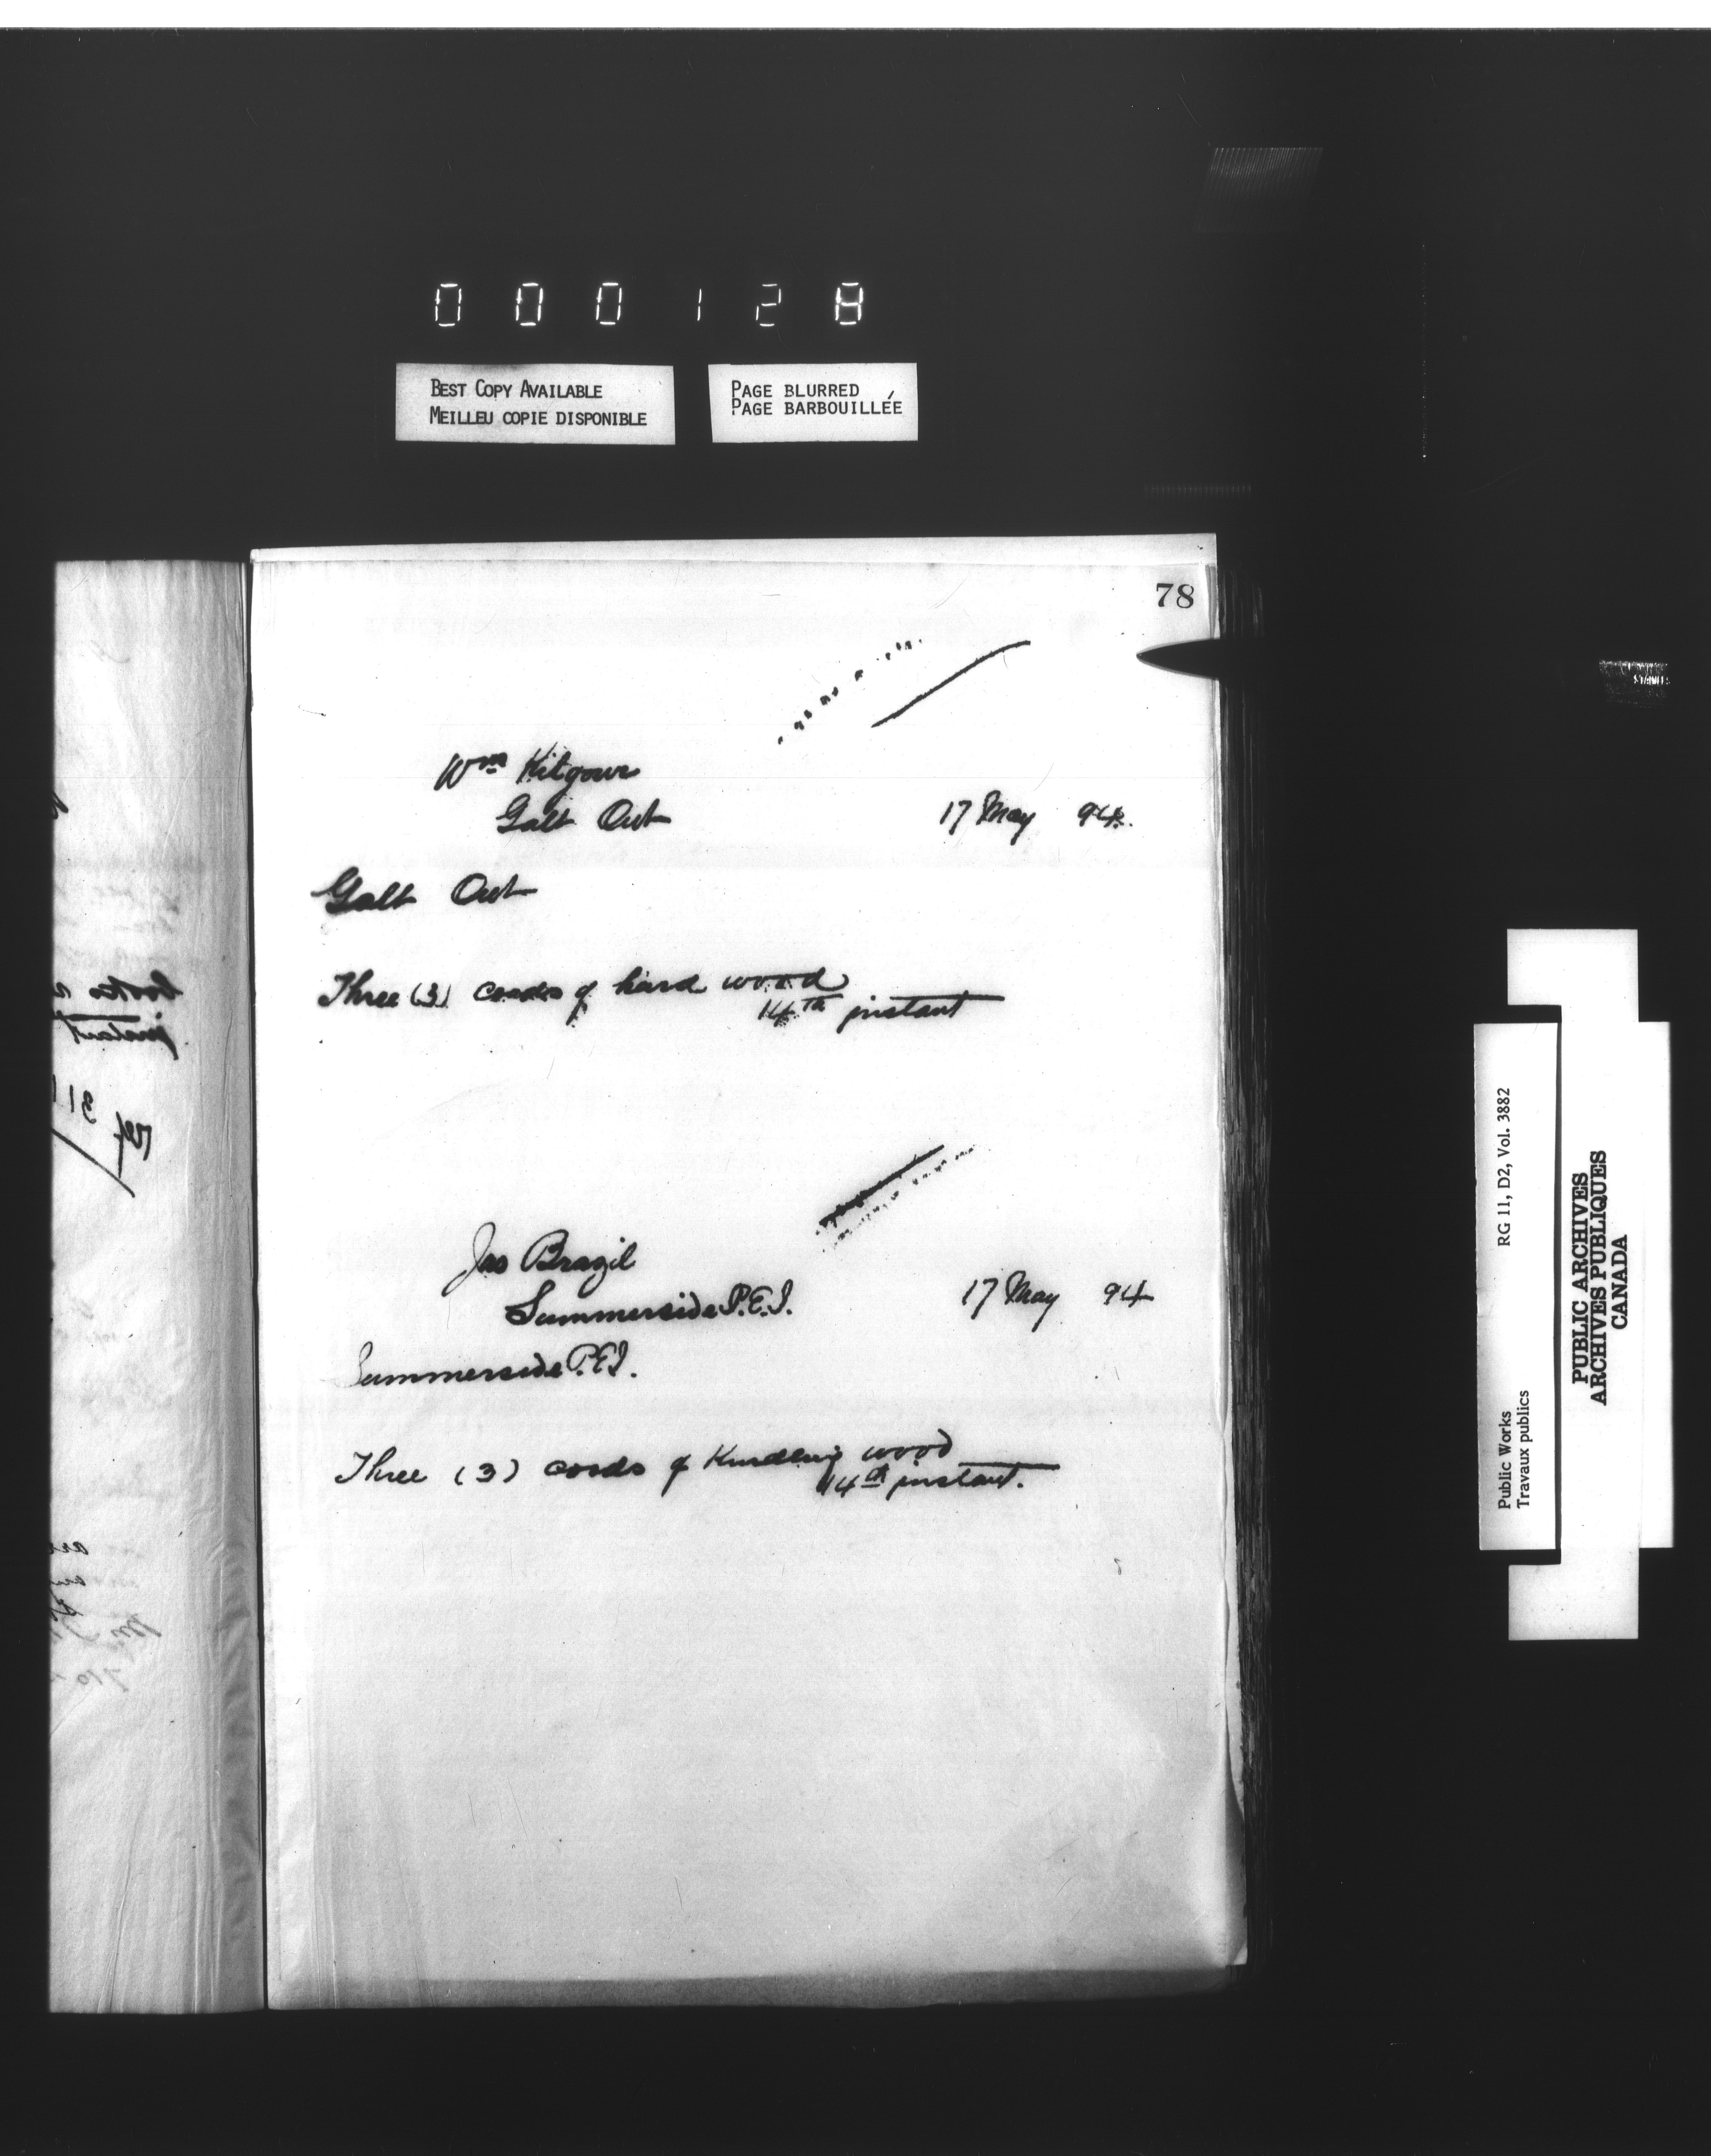 000128
BEST COPY AVAILABLE
MEILLEU COPIE DISPONIBLE
PAGE BLURRED
PAGE BARBOUILLÉE
78
Wm Kilgour
Galt Ont
17 May 94.
Galt Ont
Three (3) cords of hard wood
14th instant
Jas Brazil
Summerside P.E.I.
17 May 94
Summerside P.E.I.
Three (3) cords of Kindling wood
14th instant.
instant
Public Works
Travaux publics
RG 11, D2, Vol. 3882
PUBLIC ARCHIVES
ARCHIVES PUBLIQUES
CANADA